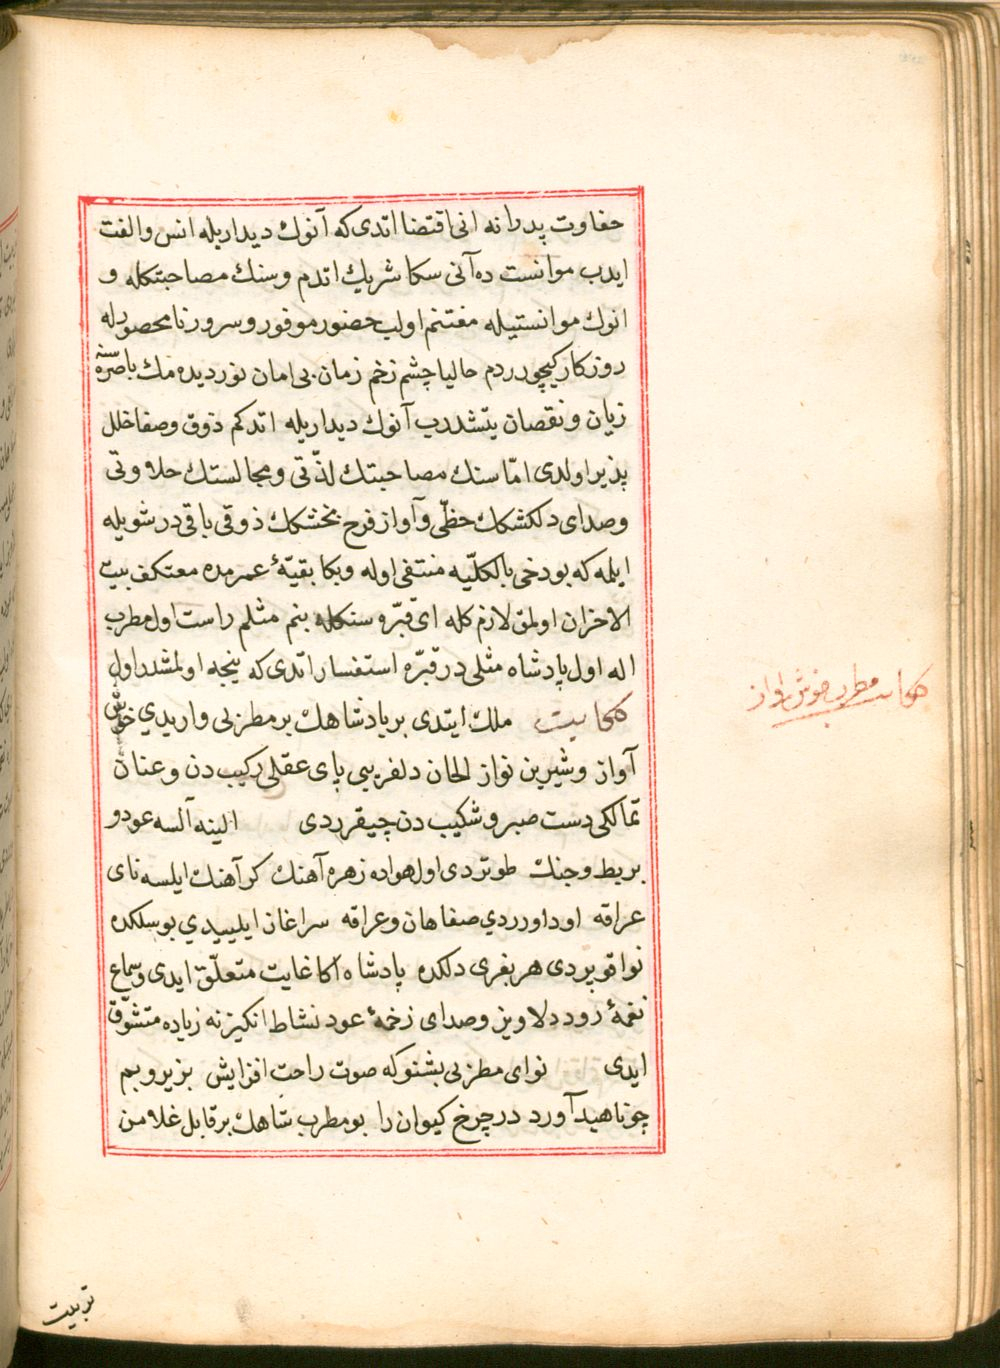 حفاوت پدرانه انی اقتضا اتدی که آنوك دیداریله انس والفت
ایدب موانست ده آنی سکا شریك اتدم وسنك مصاحبتكله و
انوك موانستیله مغتنم اولب حضور موفور وسرور نامحصورله
روزکار کیچوردم حالیا چشم زخم زمان بی امان نور دیده مك باصره سنه
زیان و نقصان یتشدرب آنوك دیداریله اتدکم ذوق وصفا خلل
پذیر اولدی امّا سنك مصاحبتك لذّتی ومجالستك حلاوتی
وصدای دلکشکك حظّی وآواز فرح بخشکك ذوقی باقی در شویله
ایله که بودخی بالکلّیه منتفی اوله وبکا بقیّهٔ عمرمده معتکف بیت
الاخزان اولمق لازم کله ای قبّره سنکله بنم مثلم راست اول مطرب
اله اول پادشاه مثلی در قبّره استفسار اتدی که نیجه اولمشدر اول
حکایت ملك ایتدی بر پادشاهك بر مطربی واریدي خوش
آواز وشیرین نواز الحان دلفریبی پای عقلی رکیب دن وعنان
تمالکی دست صبر وشکیب دن چیقرردی الینه آلسه عود و
بربط وجنك طوتردی اول هواده زهره آهنك کر آهنك ایلسه نای
عراقه اودا ورردي صفاهان وعراقه سراغاز ایلییدي بوسلكده
نوا قوپردی هر بغری دلکده پادشاه اکا غایت متعلّق ایدی وسماع
نغمهٔ رود دلاویز وصدای زخمهٔ عود نشاط انکیزنه زیاده متشوّق
ایدی نوای مطربی بشنو که صوت راحت افزایش بزیر وبم
چو ناهید آورد در چرخ کیوان را بو مطرب شاهك بر قابل غلامن
حکایت مطرب خوش اواز
تربیت